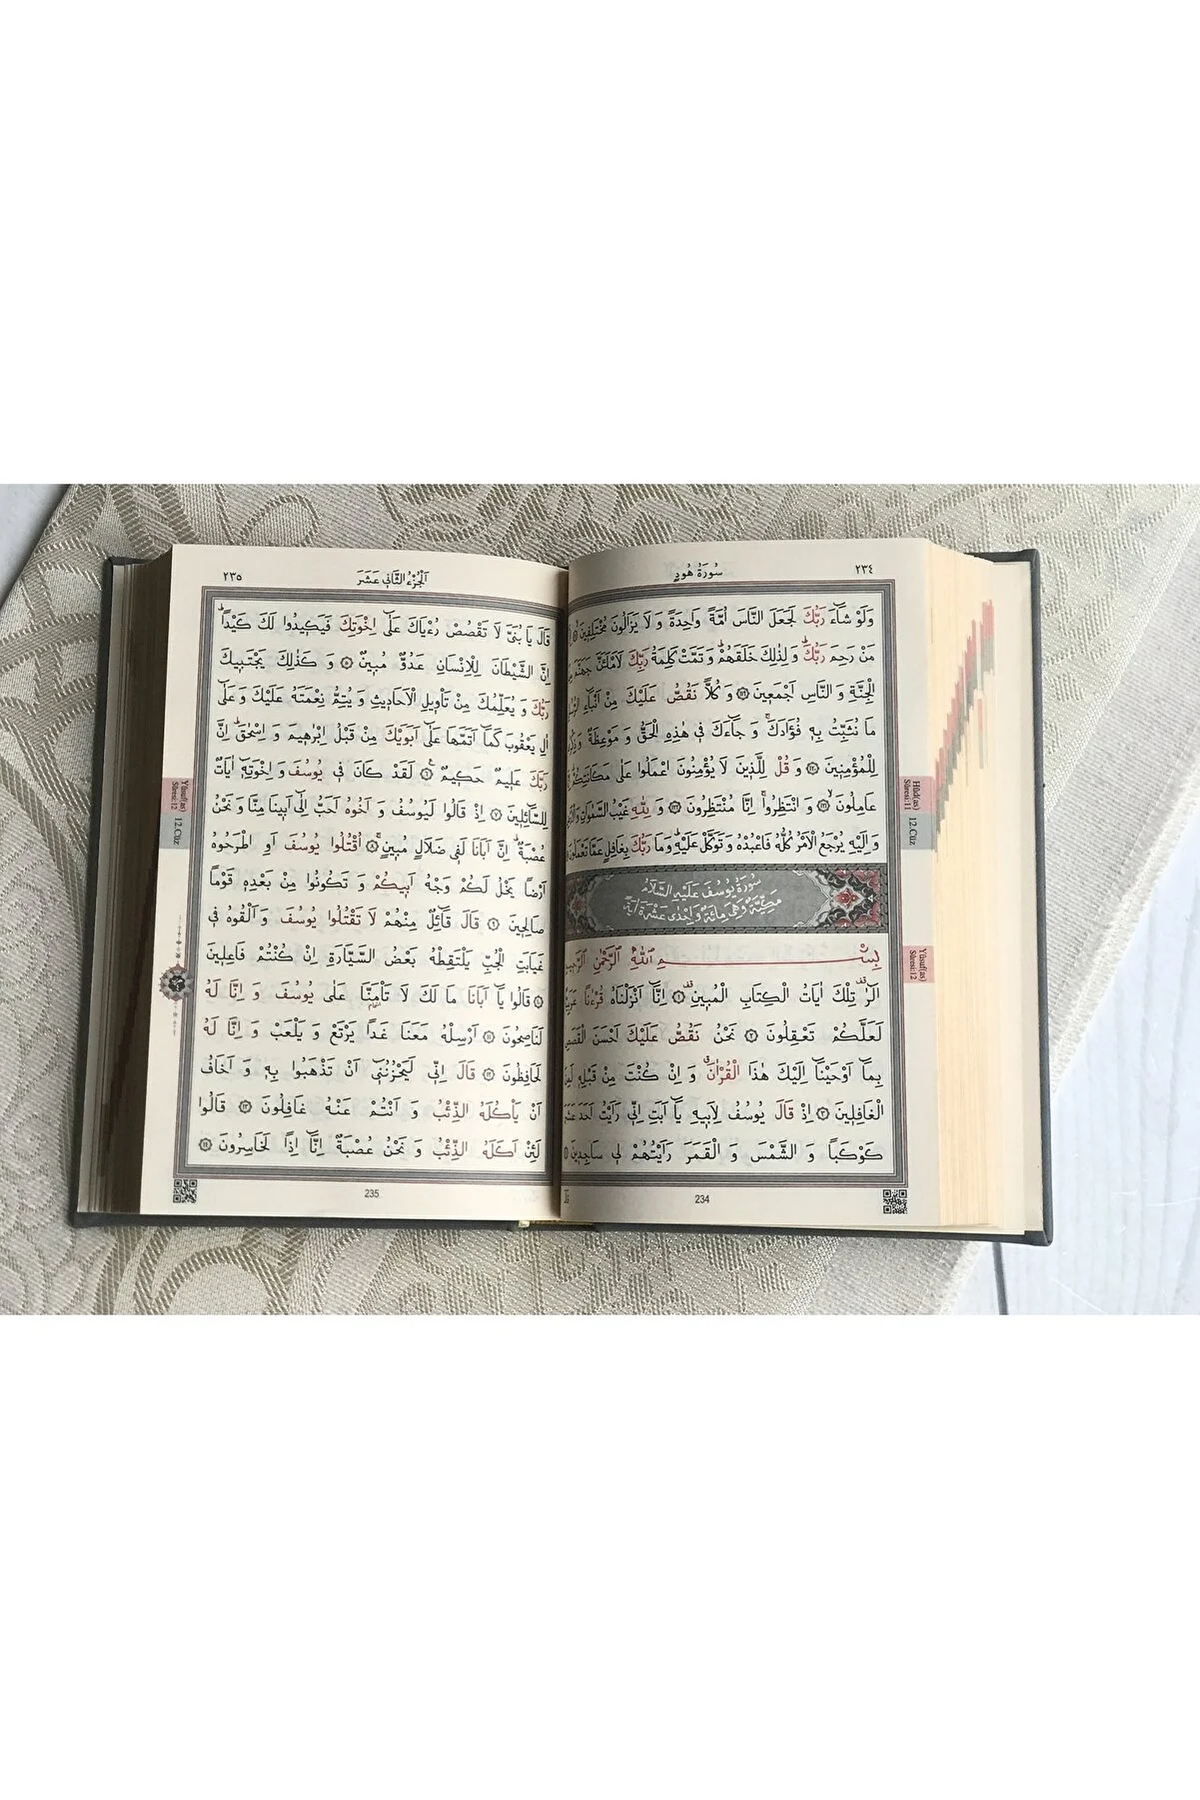 سُورَةُ هُودٍ ٢٣٤
وَلَوْ شَٓاءَ رَبُّكَ لَجَعَلَ النَّاسَ اُمَّةً وَاحِدَةً وَ لَا يَزَالُونَ مُخْتَلِفٖينَ
مَنْ رَحِمَ رَبُّكَ وَ لِذٰلِكَ خَلَقَهُمْ وَ تَمَّتْ كَلِمَةُ رَبِّكَ لَاَمْلَـَٔنَّ جَهَنَّمَ
الْجِنَّةِ وَ النَّاسِ اَجْمَعٖينَ ﴿١١٩﴾ وَ كُلًّا نَقُصُّ عَلَيْكَ مِنْ اَنْبَٓاءِ
مَا نُثَبِّتُ بِهٖ فُؤٰادَكَ وَ جَٓاءَكَ فٖى هٰذِهِ الْحَقُّ وَ مَوْعِظَةٌ
لِلْمُؤْمِنٖينَ ﴿١٢٠﴾ وَ قُلْ لِلَّذٖينَ لَا يُؤْمِنُونَ اعْمَلُوا عَلٰى مَكَانَتِكُمْ
عَامِلُونَ ﴿١٢١﴾ وَ انْتَظِرُوا اِنَّا مُنْتَظِرُونَ ﴿١٢٢﴾ وَ لِلّٰهِ غَيْبُ السَّمٰوَاتِ
وَ اِلَيْهِ يُرْجَعُ الْاَمْرُ كُلُّهُ فَاعْبُدْهُ وَ تَوَكَّلْ عَلَيْهِ وَمَا رَبُّكَ بِغَافِلٍ عَمَّا تَعْمَلُونَ
سُورَةُ يُوسُفَ عَلَيْهِ السَّلَامُ
مَكِّيَّةٌ وَهِىَ مِائَةٌ وَ اِحْدٰى عَشْرَةَ اٰيَةً
بِسْمِ اللّٰهِ الرَّحْمٰنِ الرَّحٖيمِ
الٓرٰ تِلْكَ اٰيَاتُ الْكِتَابِ الْمُبٖينِ ﴿١﴾ اِنَّٓا اَنْزَلْنَاهُ قُرْءٰنًا
لَعَلَّكُمْ تَعْقِلُونَ ﴿٢﴾ نَحْنُ نَقُصُّ عَلَيْكَ اَحْسَنَ الْقَصَصِ
بِمَٓا اَوْحَيْنَٓا اِلَيْكَ هٰذَا الْقُرْاٰنَ وَ اِنْ كُنْتَ مِنْ قَبْلِهٖ
الْغَافِلٖينَ ﴿٣﴾ اِذْ قَالَ يُوسُفُ لِاَبٖيهِ يَٓا اَبَتِ اِنّٖى رَاَيْتُ اَحَدَ عَشَرَ
كَوْكَبًا وَ الشَّمْسَ وَ الْقَمَرَ رَاَيْتُهُمْ لٖى سَاجِدٖينَ
234
Hûd(as)
Sûresi:11
12.Cüz
Yûsuf(as)
Sûresi:12
اَلْجُزْءُ الثَّانٖى عَشَرَ ٢٣٥
قَالَ يَا بُنَىَّ لَا تَقْصُصْ رُءْيَاكَ عَلٰٓى اِخْوَتِكَ فَيَكٖيدُوا لَكَ كَيْدًا
اِنَّ الشَّيْطَانَ لِلْاِنْسَانِ عَدُوٌّ مُبٖينٌ ﴿٥﴾ وَ كَذٰلِكَ يَجْتَبٖيكَ
رَبُّكَ وَ يُعَلِّمُكَ مِنْ تَاْوٖيلِ الْاَحَادٖيثِ وَ يُتِمُّ نِعْمَتَهُ عَلَيْكَ وَ عَلٰٓى
اٰلِ يَعْقُوبَ كَمَٓا اَتَمَّهَا عَلٰٓى اَبَوَيْكَ مِنْ قَبْلُ اِبْرٰهٖيمَ وَ اِسْحٰقَ اِنَّ
رَبَّكَ عَلٖيمٌ حَكٖيمٌ ﴿٦﴾ لَقَدْ كَانَ فٖى يُوسُفَ وَ اِخْوَتِهٖٓ اٰيَاتٌ
لِلسَّٓائِلٖينَ ﴿٧﴾ اِذْ قَالُوا لَيُوسُفُ وَ اَخُوهُ اَحَبُّ اِلٰٓى اَبٖينَا مِنَّا وَ نَحْنُ
عُصْبَةٌ اِنَّ اَبَانَا لَفٖى ضَلَالٍ مُبٖينٍ ﴿٨﴾ اُقْتُلُوا يُوسُفَ اَوِ اطْرَحُوهُ
اَرْضًا يَخْلُ لَكُمْ وَجْهُ اَبٖيكُمْ وَ تَكُونُوا مِنْ بَعْدِهٖ قَوْمًا
صَالِحٖينَ ﴿٩﴾ قَالَ قَٓائِلٌ مِنْهُمْ لَا تَقْتُلُوا يُوسُفَ وَ اَلْقُوهُ فٖى
غَيَابَتِ الْجُبِّ يَلْتَقِطْهُ بَعْضُ السَّيَّارَةِ اِنْ كُنْتُمْ فَاعِلٖينَ
﴿١٠﴾ قَالُوا يَٓا اَبَانَا مَا لَكَ لَا تَاْمَنَّا عَلٰى يُوسُفَ وَ اِنَّا لَهُ
لَنَاصِحُونَ ﴿١١﴾ اَرْسِلْهُ مَعَنَا غَدًا يَرْتَعْ وَ يَلْعَبْ وَ اِنَّا لَهُ
لَحَافِظُونَ ﴿١٢﴾ قَالَ اِنّٖى لَيَحْزُنُنٖٓى اَنْ تَذْهَبُوا بِهٖ وَ اَخَافُ
اَنْ يَاْكُلَهُ الذِّئْبُ وَ اَنْتُمْ عَنْهُ غَافِلُونَ ﴿١٣﴾ قَالُوا
لَئِنْ اَكَلَهُ الذِّئْبُ وَ نَحْنُ عُصْبَةٌ اِنَّٓا اِذًا لَخَاسِرُونَ ﴿١٤﴾
235
Yûsuf(as)
Sûresi:12
12.Cüz